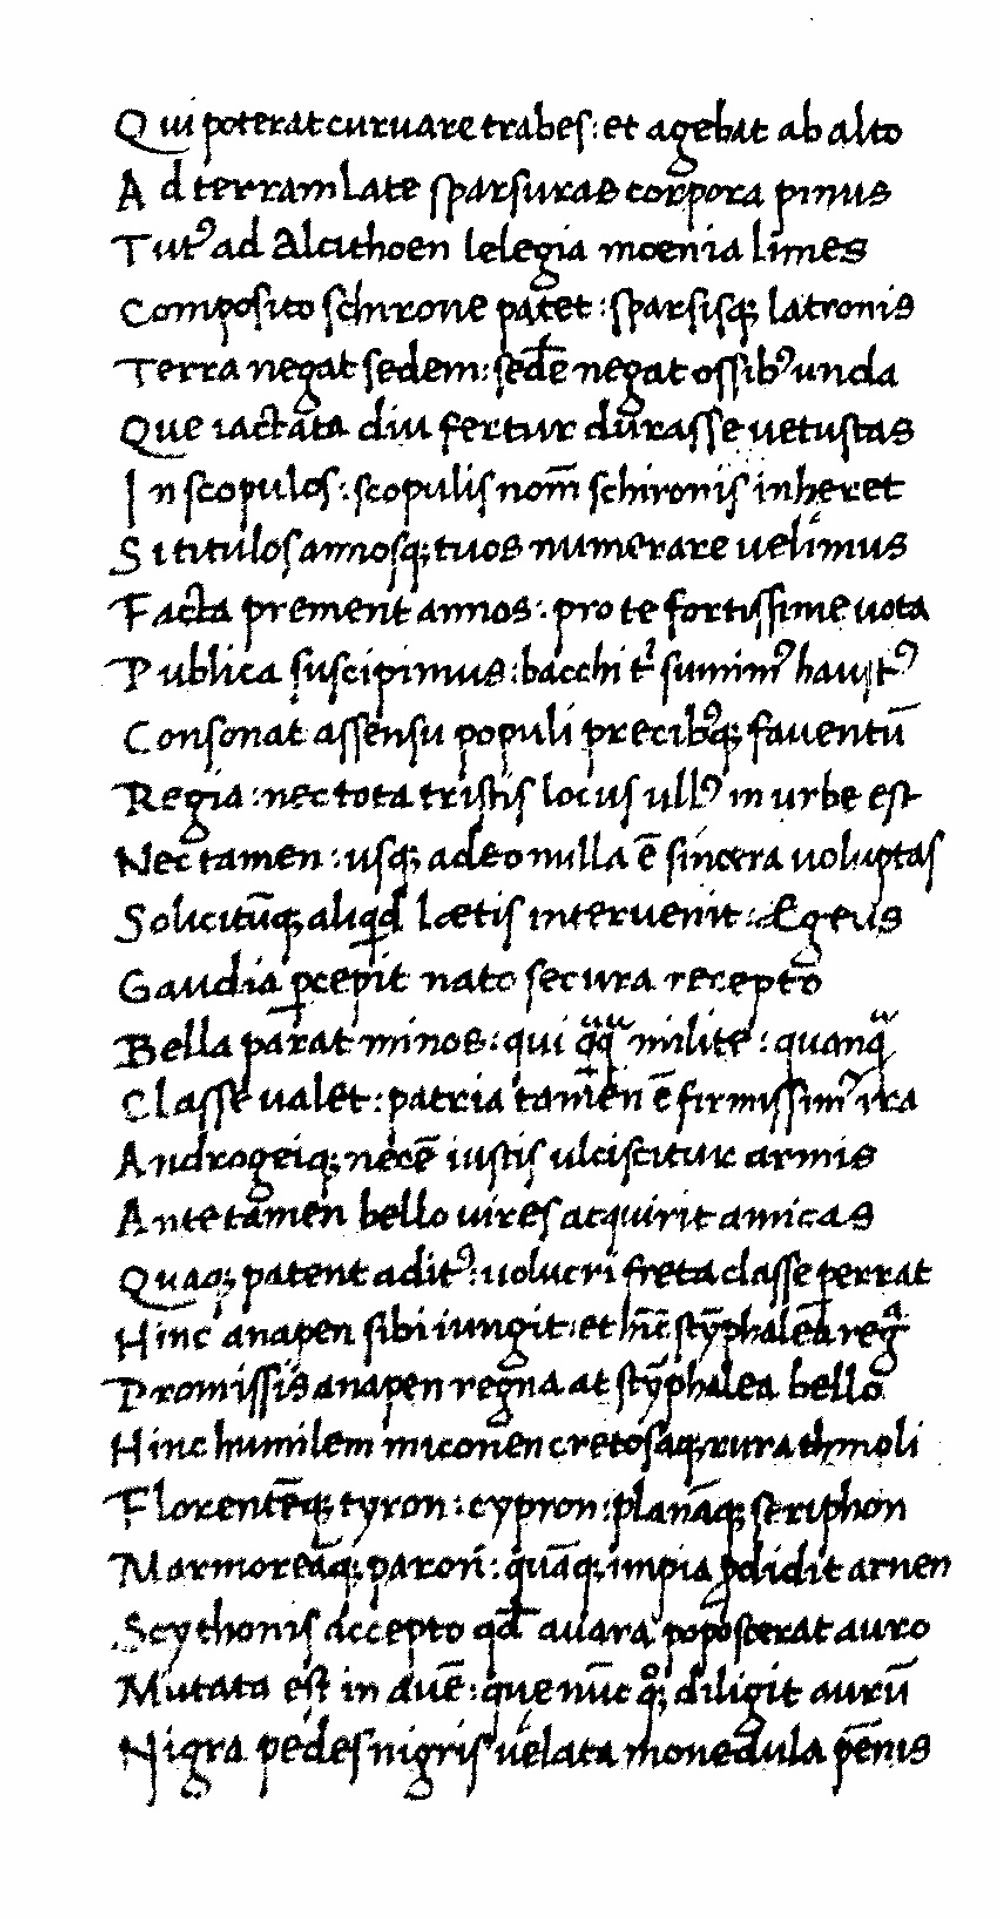 Qui poterat curuare trabes: et agebat ab alto
Ad terram late sparsuras corpora pinus
Tutꝰ ad Alcithoen lelegia moenia limes
Composito schirone patet: sparsisqꝫ latronis
Terra negat sedem: sedē negat ossibꝰ unda
Que iactata diu fertur durasse uetustas
In scopulos: scopulis nom̄ schironis inheret
Si titulos annosqꝫ tuos numerare uelimus
Facta prement annos: pro te fortissime uota
Publica suscipimus: bacchi tͥ sumimꝰ haustꝰ
Consonat assensu populi precibꝰqꝫ fauentū
Regia: nec tota tristis locus ullꝰ in urbe est
Nec tamen: usqꝫ adeo nulla ē sincera uoluptas
Solicitūqꝫ aliqd lætis interuenit: Ægeus
Gaudia ꝑcepit nato secura recepto
Bella parat minos: qui qᷓqᷓ milite: quanqᷓ
Classe ualet: patria tamen ē firmissimꝰ ira
Androgeiqꝫ necē iustis ulciscitur armis
Ante tamen bello uires acquirit amicas
Quaqꝫ patent aditꝰ: uolucri freta classe pererrat
Hinc anapen sibi iungit: et hīc stȳphaleā regᷓ
Promissis anapen regna at stȳphalea bello
Hinc humilem miconen cretosaqꝫ rura thmoli
Florentēqꝫ tyron: cypron: planāqꝫ seriphon
Marmoreāqꝫ paron: quāqꝫ impia ꝓdidit arnen
Scythonis accepto qd̄ auara poposcerat auro
Mutata est in auē: que nūc qͦqꝫ diligit aurū
Nigra pedes nigris uelata monedula pēnis